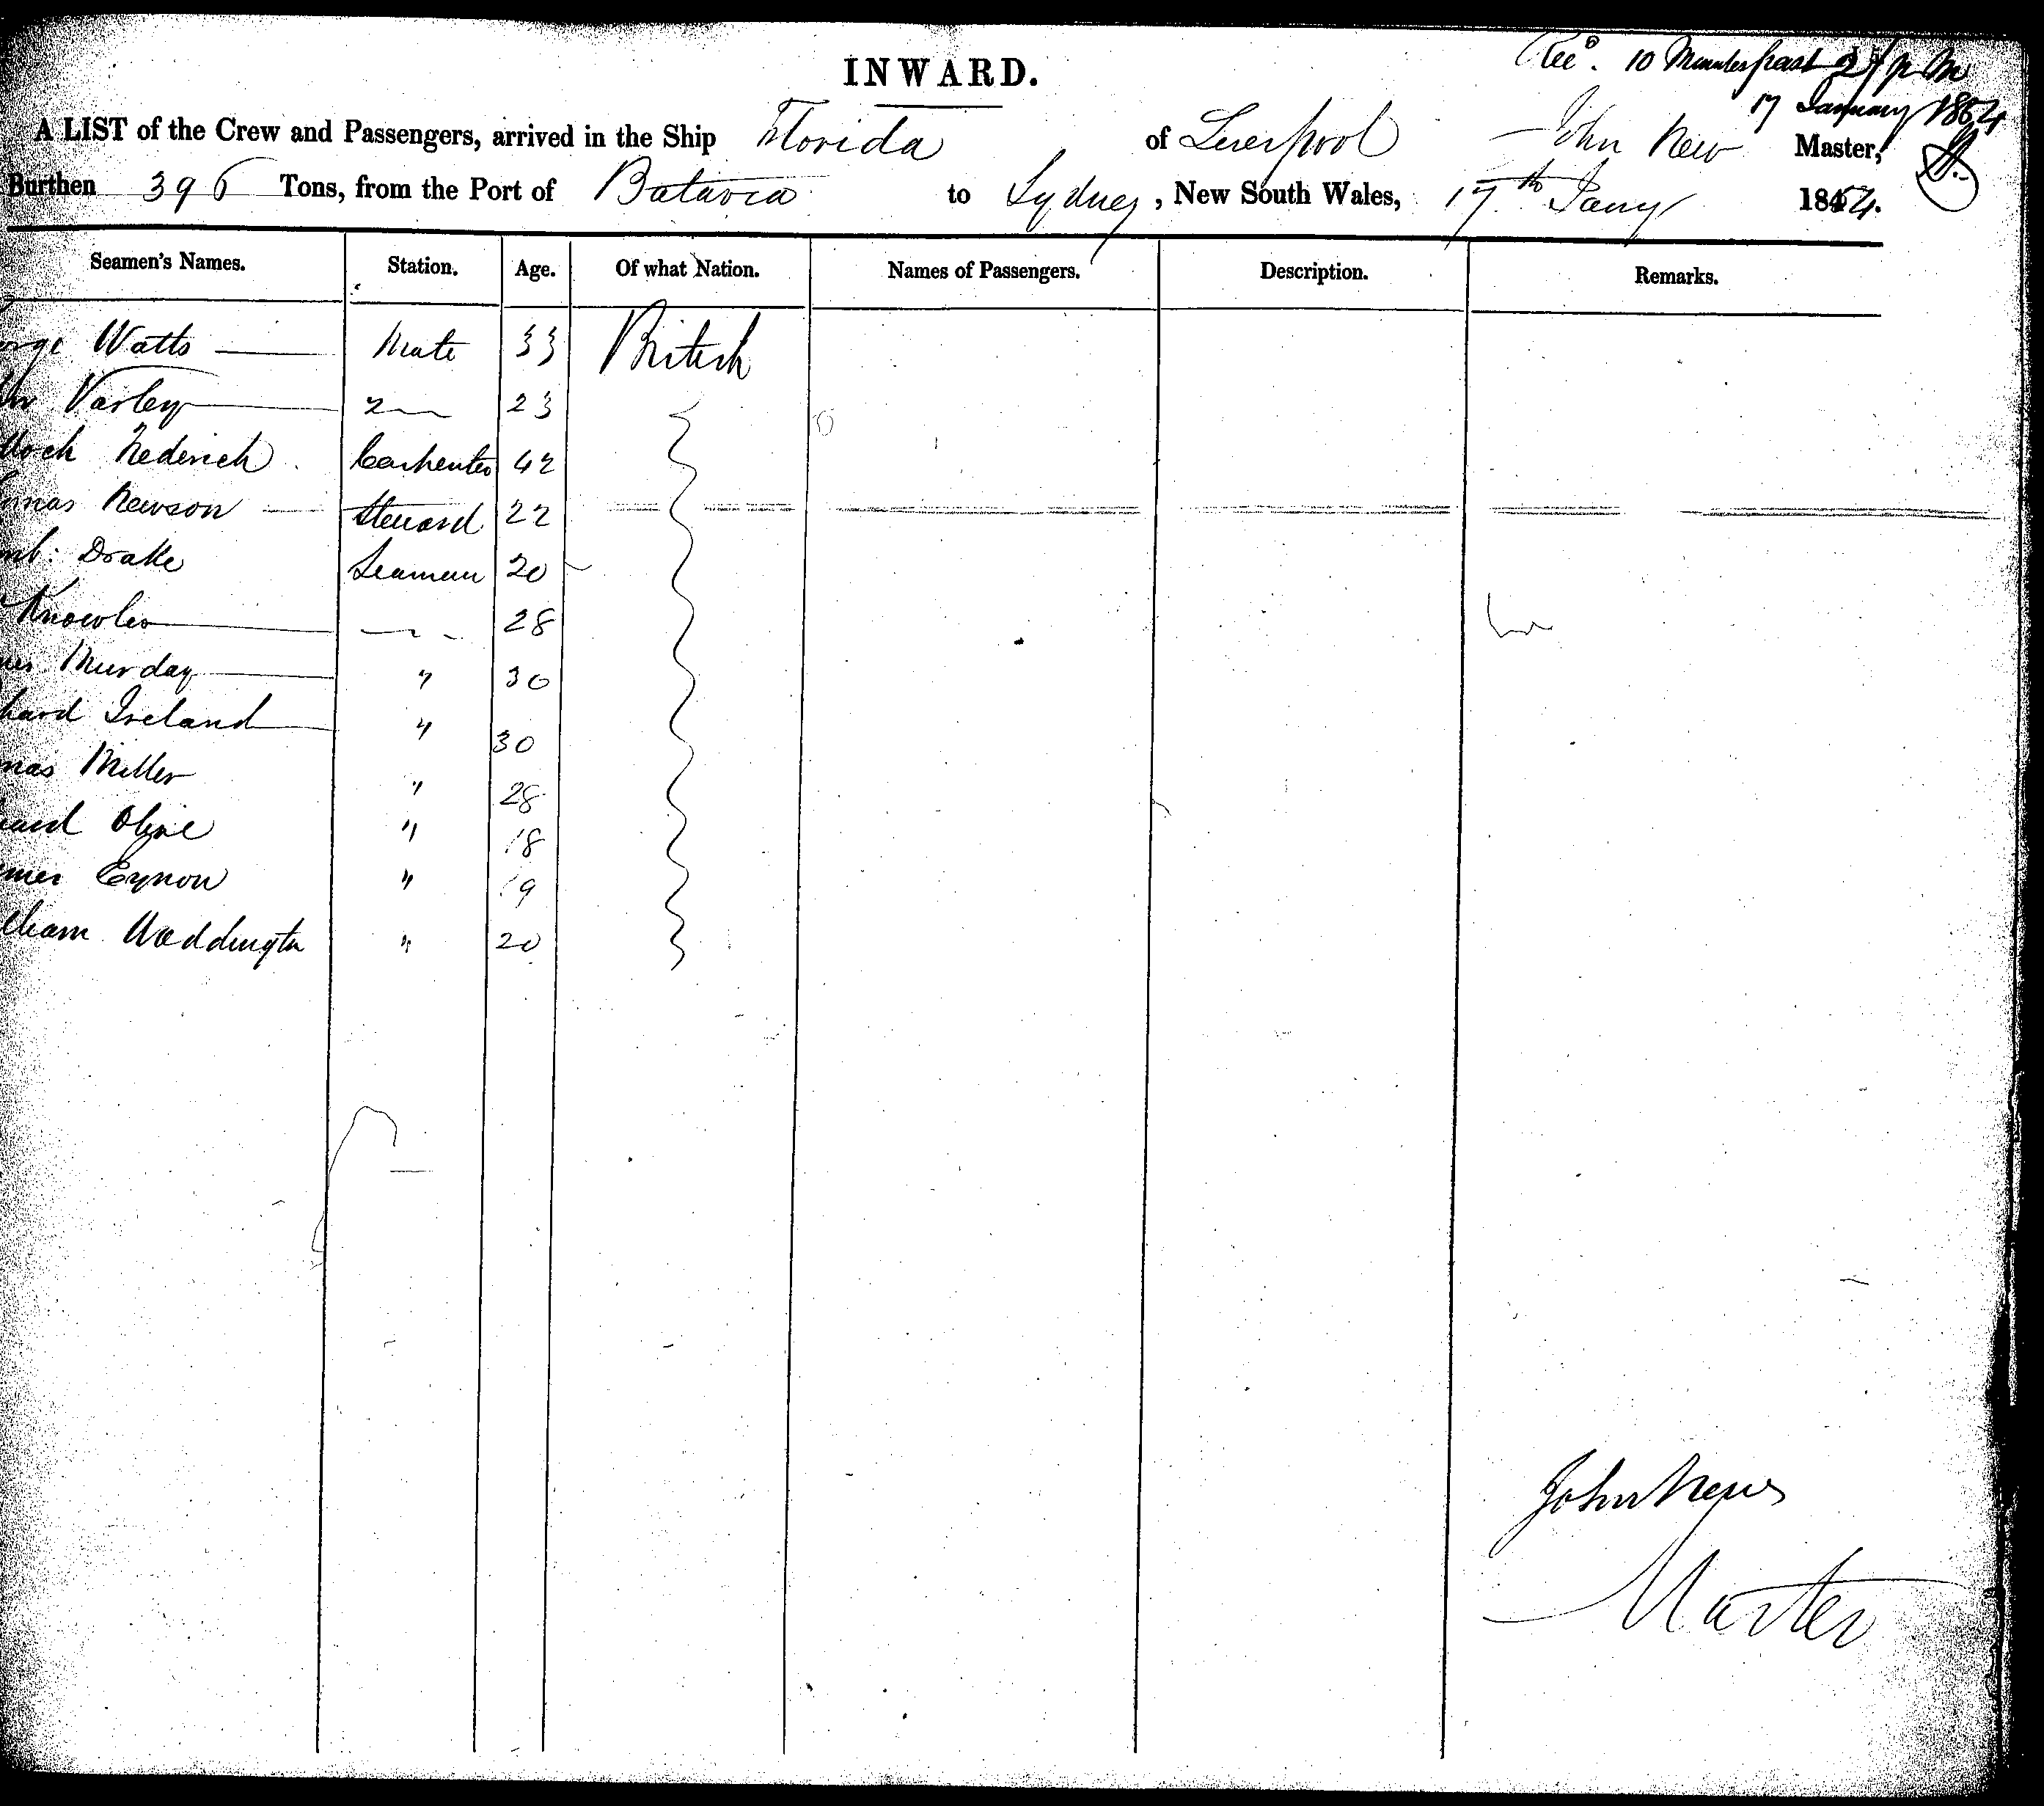 INWARD.
Recd. 10 Minutes past 2 p m
17 January 1854
A LIST of the Crew and Passengers, arrived in the Ship Florida of Liverpool John New Master,
Burthen 396 Tons, from the Port of Batavia to Sydney, New South Wales, 17th Jany 1854.
Seamen's Names. Station. Age. Of what Nation. Names of Passengers. Description. Remarks.
orge Watts Mate 33 British
Varley 2 23
Carpenter 42
omas Newson Steward 22
Drake Seaman 20
Knowles 28
Murday " 30
hard Ireland " 30
mas Miller " 28
Olive " 18
mes Eynon " 19
lliam Waddington " 20
John New
Master